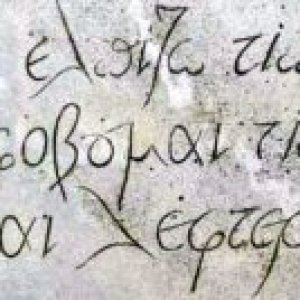 ἐλπίζω τίπ
φοβοῦμαι τίπ
αι λέφτερο